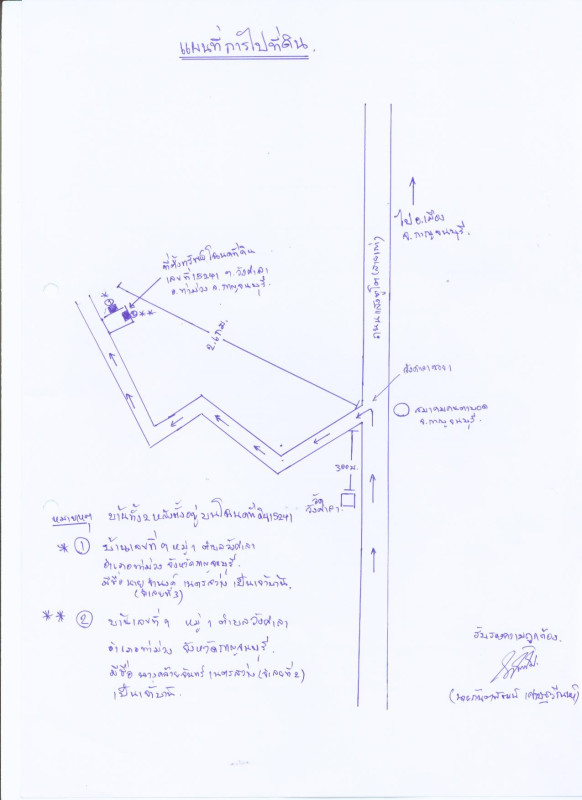 แผนที่การไปที่ดิน.
ไป อ.เมือง
จ.กาญจนบุรี.
ที่ตั้งทรัพย์ โฉนดที่ดิน
เลขที่ 15241 ต.วังศาลา
อ.ท่าม่วง จ.กาญจนบุรี.
*
1
2 **
2.6 กม.
ถนนแสงชูโต (สายเก่า)
วังศาลา ซอย 1
สมาคม
จ.กาญจนบุรี.
300 ม.
วัด
วังศาลา
หมายเหตุ บ้านทั้ง 2 หลังตั้งอยู่บนโฉนดที่ดิน 15241
* 1 บ้านเลขที่ ๑ หมู่ 1 ตำบลวังศาลา
อำเภอท่าม่วง จังหวัดกาญจนบุรี.
มีชื่อ นาย เนตรสว่าง เป็นเจ้าบ้าน
(จำเลยที่ 3)
** 2 บ้านเลขที่ ๑ หมู่ 1 ตำบลวังศาลา
อำเภอท่าม่วง จังหวัดกาญจนบุรี.
มีชื่อ นางคล้ายจันทร์ เนตรสว่าง (จำเลยที่ 2)
เป็นเจ้าบ้าน.
รับรองความถูกต้อง